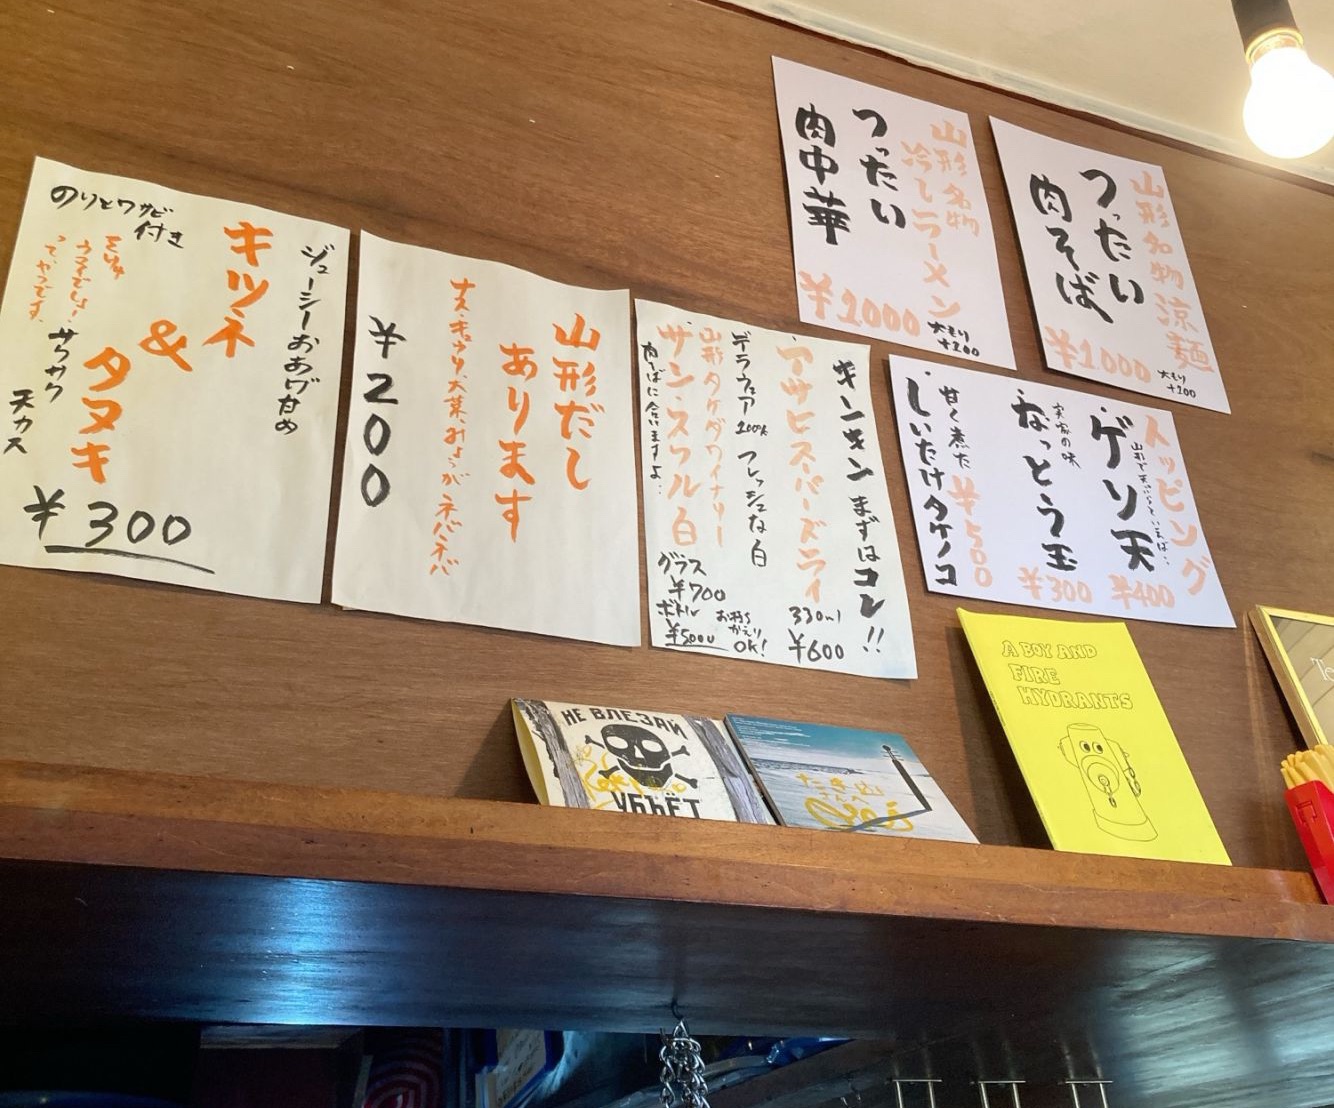 山形名物涼麺
つったい
肉そば
¥1000
大もり
+200
山形名物
冷しラーメン
つったい
肉中華
¥1000
大もり
+200
トッピング
ゲソ天
¥400
実家の味
なっとう玉
¥300
甘く煮た
しいたけタケノコ
¥500
キンキン まずはコレ!!
アサヒスーパードライ
330ml
¥600
デラウェア 100% フレッシュな白
山形タケダワイナリー
サン・スフル 白
肉そばに合いますよ..
グラス
¥700
ボトル
¥5000
お持ち
かえり
OK!
山形だし
あります
ナス、キュウリ、大葉、みょうが ネバネバ
¥200
ジューシーおあげ甘め
キツネ
&
タヌキ
のりとワサビ
付き
ウマイでしょ!
って、やつです。
サクサク
天カス
¥300
НЕ ВЛЕЗАЙ
УБЬЁТ
A BOY AND
FIRE
HYDRANTS